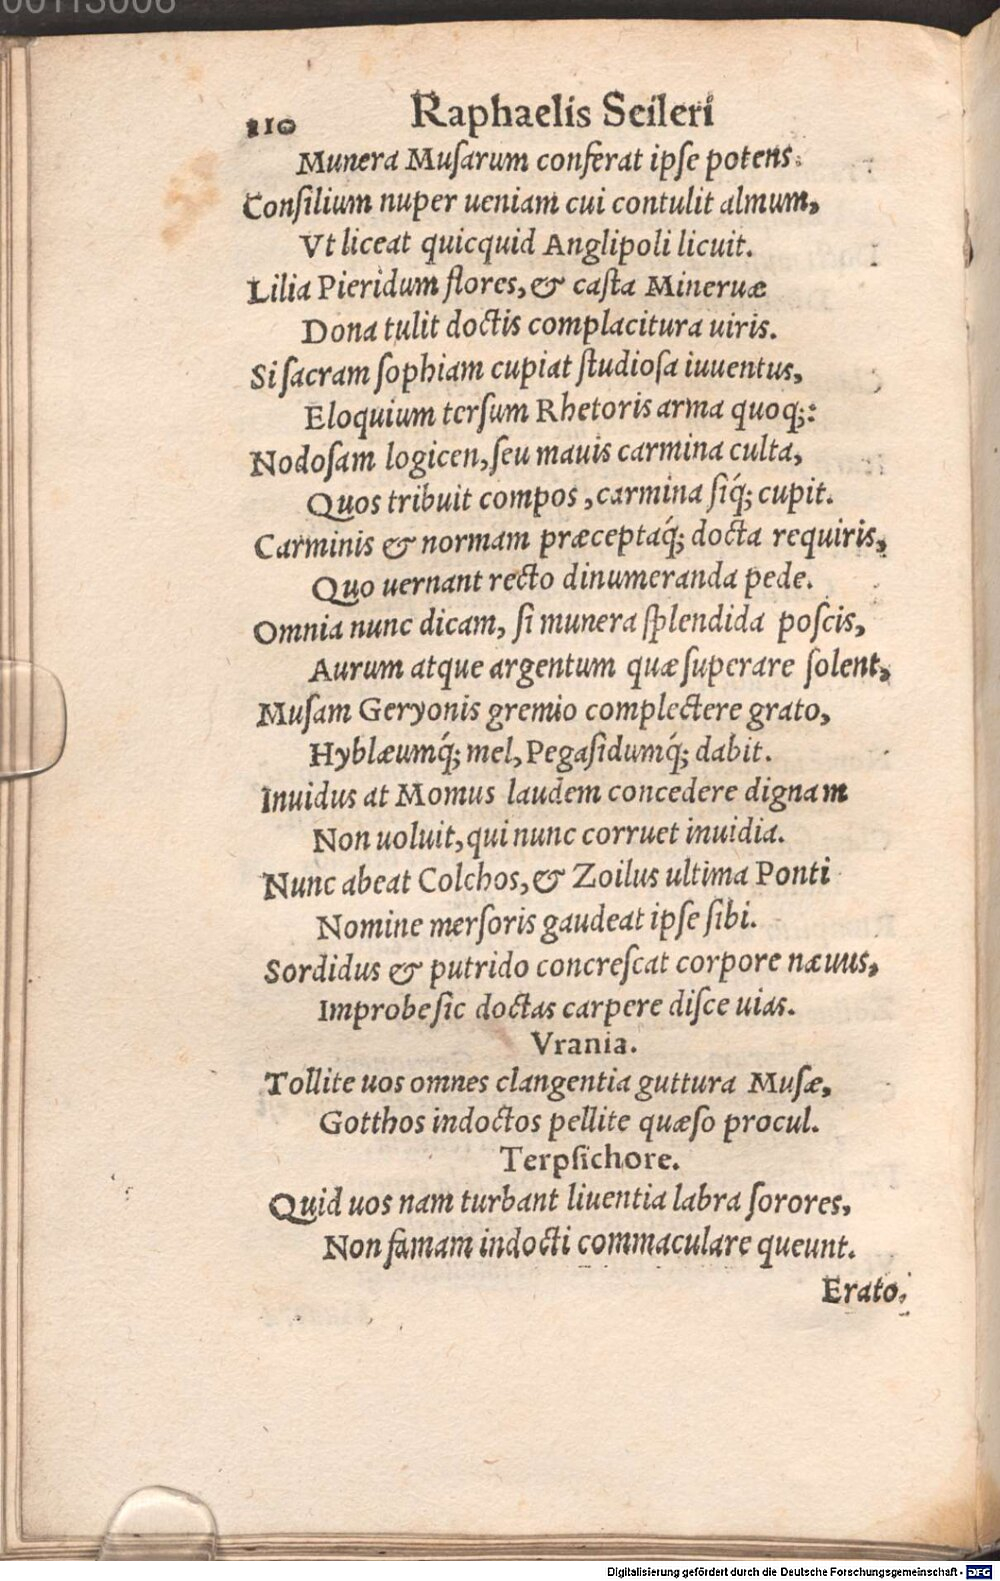 00113006
210 Raphaelis Seileri
Munera Muſarum conferat ipſe potens.
Conſilium nuper ueniam cui contulit almum,
Vt liceat quicquid Anglipoli licuit.
Lilia Pieridum flores, & caſta Mineruæ
Dona tulit doctis complacitura uiris.
Si ſacram ſophiam cupiat ſtudioſa iuuentus,
Eloquium terſum Rhetoris arma quoq;:
Nodoſam logicen, ſeu mauis carmina culta,
Quos tribuit compos, carmina ſiq́; cupit.
Carminis & normam præceptaq́; docta requiris,
Quo uernant recto dinumeranda pede.
Omnia nunc dicam, ſi munera ſplendida poſcis,
Aurum atque argentum quæ ſuperare ſolent,
Muſam Geryonis gremio complectere grato,
Hyblæumq́; mel, Pegaſidumq́; dabit.
Inuidus at Momus laudem concedere dignam
Non uoluit, qui nunc corruet inuidia.
Nunc abeat Colchos, & Zoilus ultima Ponti
Nomine merſoris gaudeat ipſe ſibi.
Sordidus & putrido concreſcat corpore næuus,
Improbe ſic doctas carpere diſce uias.
Vrania.
Tollite uos omnes clangentia guttura Muſæ,
Gotthos indoctos pellite quæſo procul.
Terpſichore.
Quid uos nam turbant liuentia labra ſorores,
Non famam indocti commaculare queunt.
Erato.
Digitalisierung gefördert durch die Deutsche Forschungsgemeinschaft - DFG